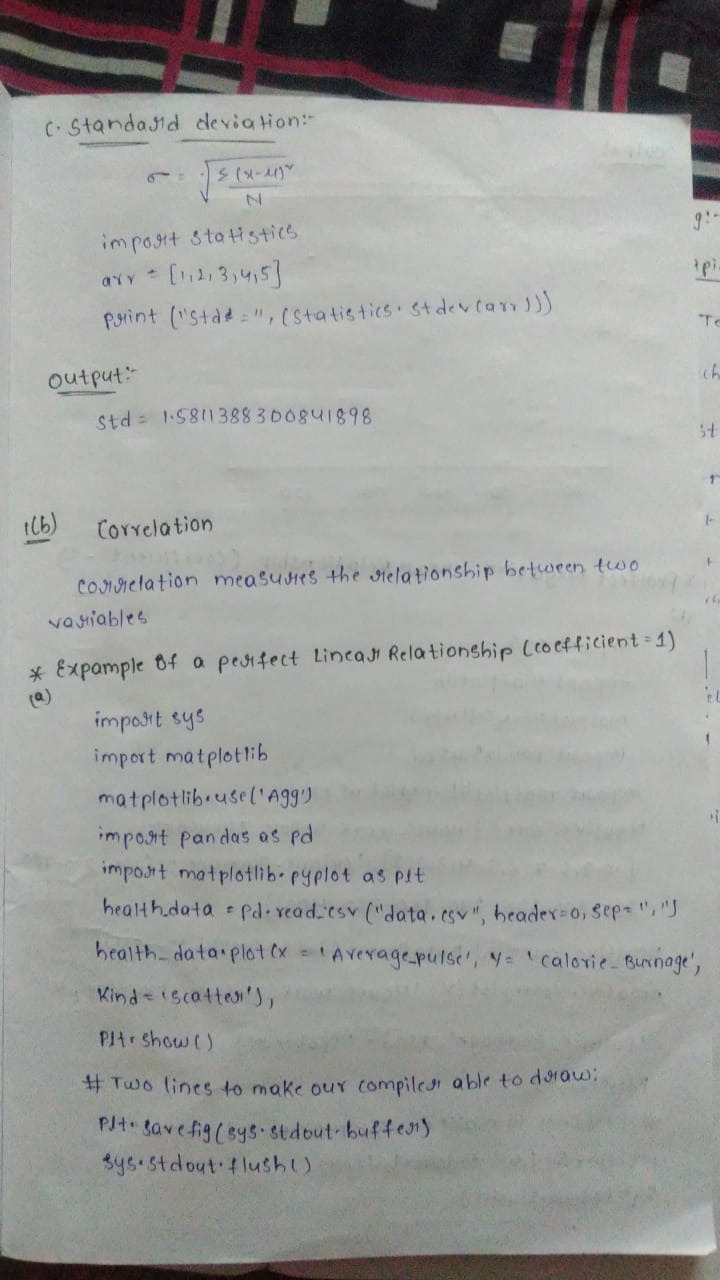 C. Standard deviation:-
σ = √Σ(x-μ)²
N
import statistics
arr = [1,2,3,4,5]
print ("Std =", (statistics.stdev(arr)))
output:-
std = 1.5811388300841898
1(b) Correlation
correlation measures the relationship between two
variables
* Expample Of a perfect Linear Relationship (coefficient = 1)
(a)
import sys
import matplotlib
matplotlib.use('Agg')
import pandas as pd
import matplotlib.pyplot as plt
health_data = pd.read_csv ("data.csv", header=0, sep= ",")
health_data.plot (x = 'Average_pulse', y = 'calorie_Burnage',
Kind = 'scatter'),
Plt.show()
# Two lines to make our compiler able to draw:
Plt.savefig(sys.stdout.buffer)
sys.stdout.flush()